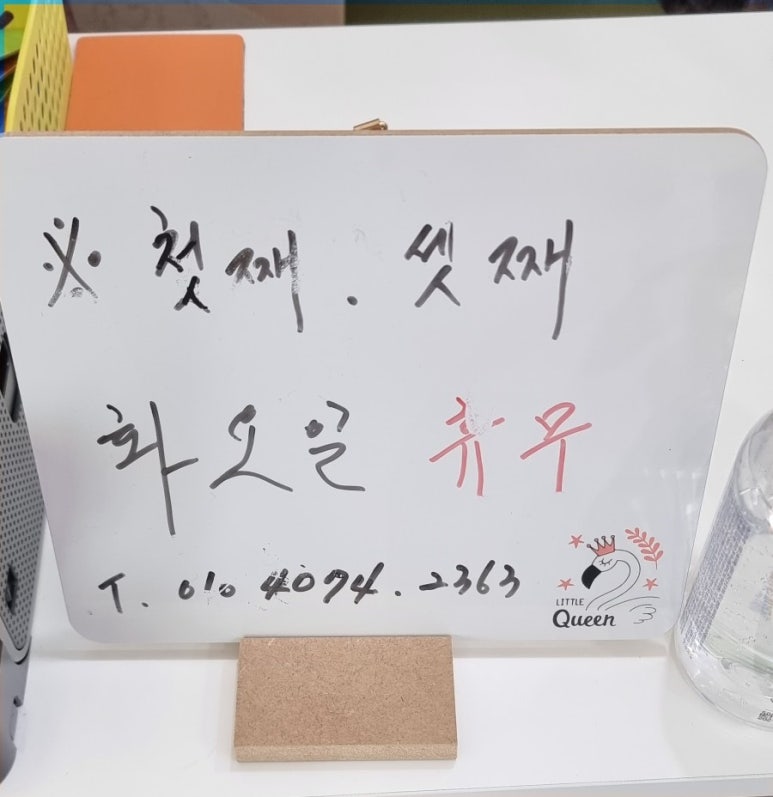 ※ 첫째. 셋째
화요일 휴무
T. 010 4074. 2363
LITTLE
Queen